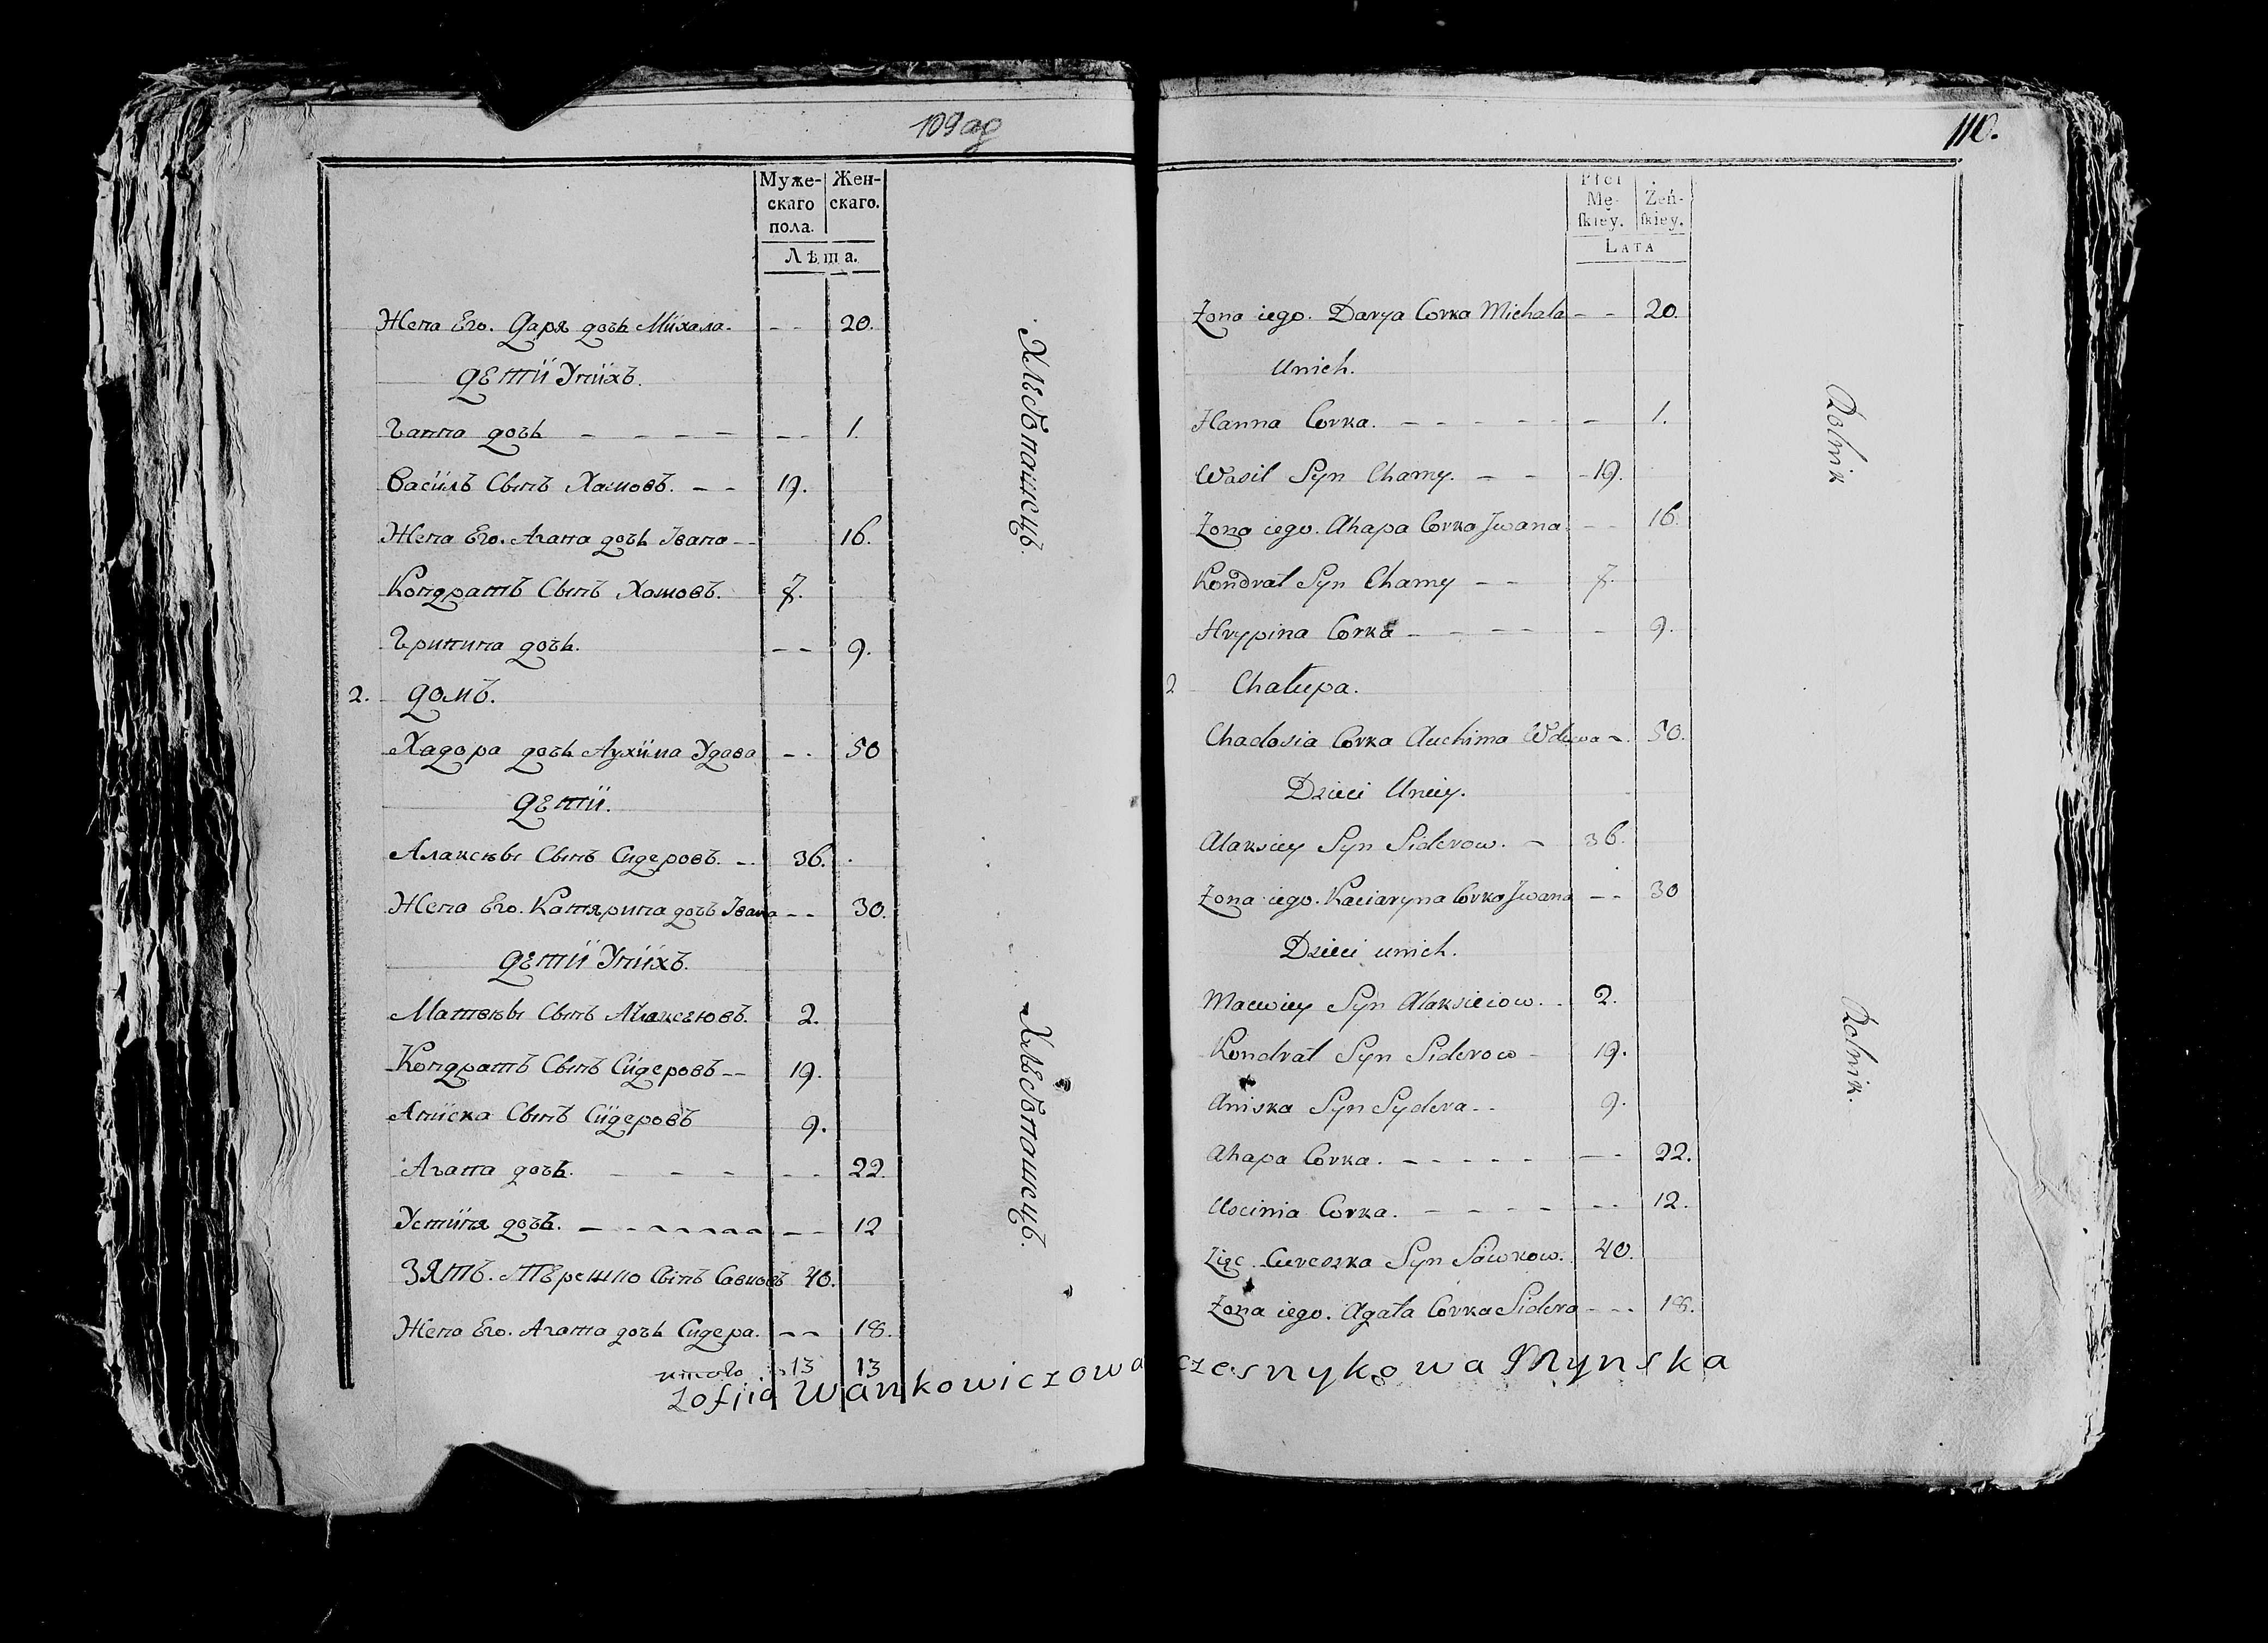 109 ад
Муже-
скаго
пола.
Жен-
скаго.
Лѣта.
Жена Его. Даря дочь Михала. - - 20.
Дети Уних.
Ганна дочь - - - - - - 1.
Василъ Сынъ Хамовъ. - - 19.
Жена Его. Агапа дочь Iвана - - 16.
Кондратъ Сынъ Хамовъ. 7.
Грипина дочь. - - 9.
2. Домъ.
Хадора дочь Аухима Удава - - 50
Дети.
Алаксѣы Сынъ Сидеровъ. - 36.
Жена Его. Катярина дочь Iвана - - 30.
Дети Унихъ.
Матвѣы Сынъ 2.
Кондратъ Сынъ Сидеровъ - - 19.
Аниска Сынъ Сидеровъ 9.
Агапа дочь. - - - - - 22.
Устиня дочь. - - - - - 12
Зять. Терешко Сынъ Савковъ 40.
Жена Его. Агата дочь Сидера. - - 18.
итого 13 13
Хлебопашецъ.
Хлѣбопашецъ.
110.
Płci
Mę-
ſkiey.
Żeń-
ſkiey.
LATA
Żona iego. Darya Corka Michała - - 20.
Unich.
Hanna Corka. - - - - - - 1.
Wasil Syn Chamy. - - - 19.
Żona iego. Ahapa Corka Jwana. - - 16.
Kondrat Syn Chamy - - 7.
Hrypina Corka - - - - - 9.
2 Chałupa.
Chadosia Corka Auchima Wdowa - 50.
Dzieci Uniey.
Alaksiey Syn Siderow. - 36.
Żona iego. Kaciaryna Corka Jwana - - 30
Dzieci unich.
Maciviey Syn Alaksieiow. - 2.
Kondrat Syn Siderow - 19.
Aniska Syn Sydera - - 9.
Ahapa Corka. - - - - - - - 22.
Uscinia Corka. - - - - - - 12.
Zięc. Syn Sawkow. 40.
Żona iego. Agata Corka Sidera - - - 18.
Rolnik
Rolnik.
Zofjia Wankowiczowa czesnykowa Mynska